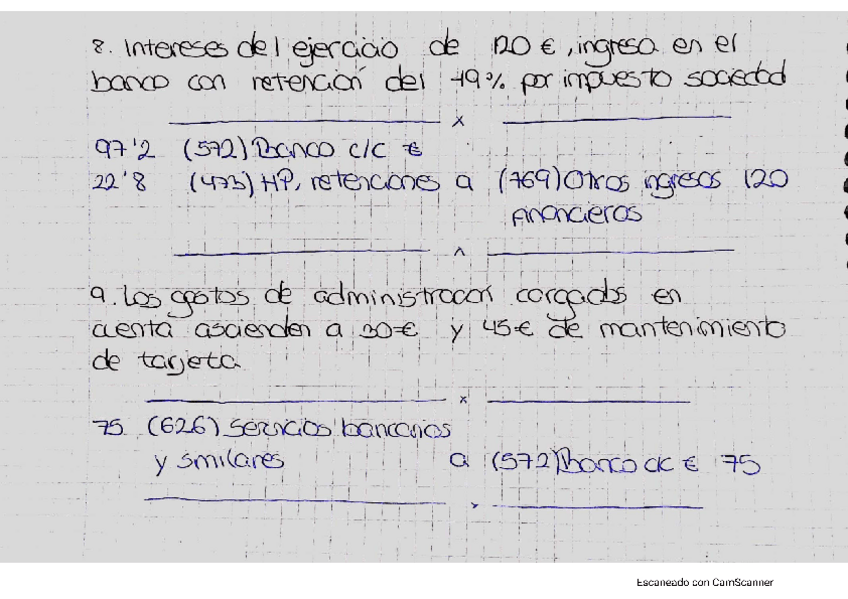 8. Intereses del ejercicio de 120 €, ingresa en el
banco con retención del 19% por impuesto sociedad
x
97'2 (572) Banco c/c €
22'8 (473) HP, retenciones a (769) Otros ingresos 120
financieros
9. Los gastos de administración cargados en
cuenta ascienden a 30€ y 45€ de mantenimiento
de tarjeta
x
75 (626) Servicios bancarios
y similares a (572) Banco c/c € 75
Escaneado con CamScanner